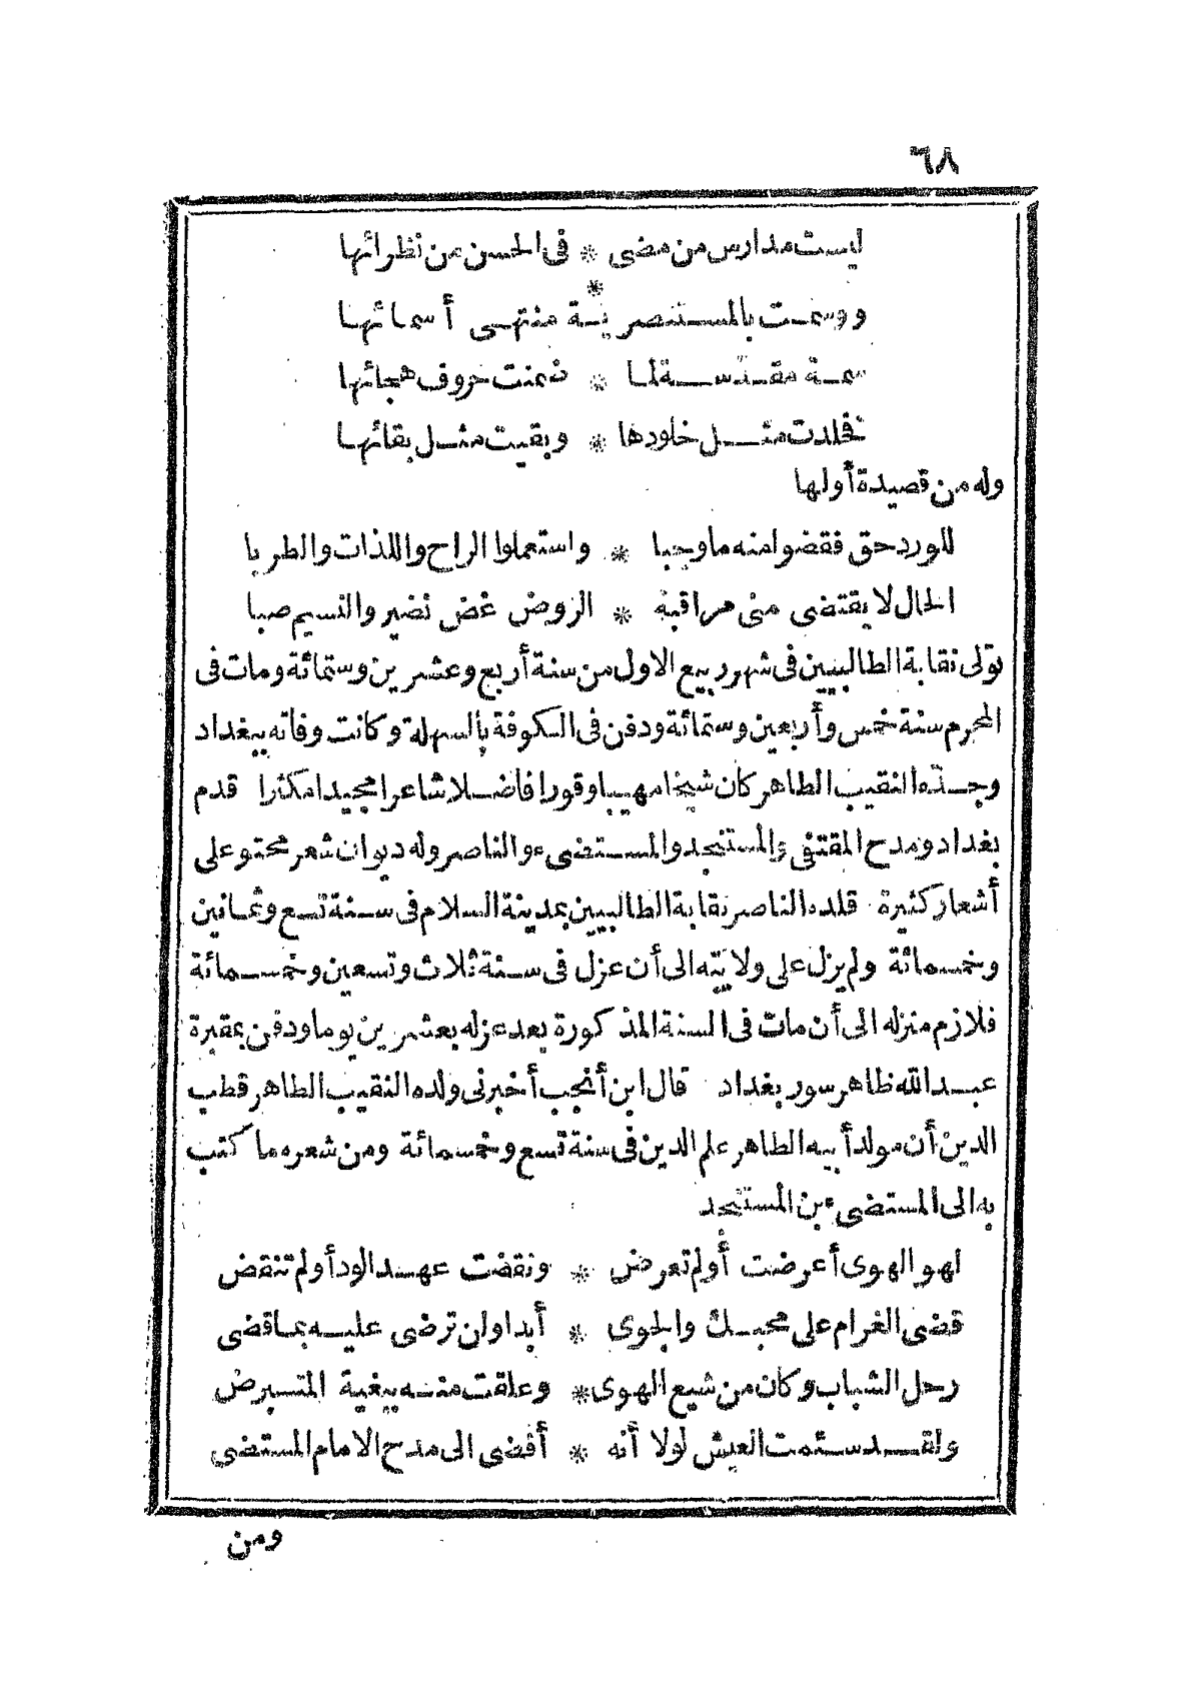 ٦٨
ليست مدارس من مضى * فى الحسن من نظرائها
*
ووسمت بالمستنصرية منتهى أسمائها
سمة مقدسة لما * ضمنت حروف هجائها
فخلدت مثل خلودها * وبقيت مثل بقائها
وله من قصيدة أولها
للورد حق فقضوا منه ما وجبا * واستعملوا الراح واللذات والطربا
الحال لا يقتضى منى مراقبة * الروض غض نضير والنسيم صبا
تولى نقابة الطالبيين فى شهر ربيع الاول من سنة أربع وعشرين وستمائة ومات فى
المحرم سنة خمس وأربعين وستمائة ودفن فى الكوفة بالسهلة وكانت وفاته ببغداد
وجده النقيب الطاهر كان شيخا مهيبا وقورا فاضلا شاعرا مجيدا مكثرا قدم
بغداد ومدح المقتفى والمستنجد والمستضىء والناصر وله ديوان شعر محتو على
أشعار كثيرة قلده الناصر نقابة الطالبيين بمدينة السلام فى سنة تسع وثمانين
وخمسمائة ولم يزل على ولايته الى أن عزل فى سنة ثلاث وتسعين وخمسمائة
فلازم منزله الى أن مات فى السنة المذكورة بعد عزله بعشرين يوما ودفن بمقبرة
عبد الله ظاهر سور بغداد قال ابن أنجب أخبرنى ولده النقيب الطاهر قطب
الدين أن مولد أبيه الطاهر علم الدين فى سنة تسع وخمسمائة ومن شعره ما كتب
به الى المستضىء بن المستنجد
لهو الهوى أعرضت أولم تعرض * ونقضت عهد الود أولم تنقض
قضى الغرام على محبك والجوى * أبدا وان ترضى عليه بما قضى
رحل الشباب وكان من شيع الهوى * وعلقت منه ببغية المتبرض
ولقد سئمت العيش لولا أنه * أفضى الى مدح الامام المستضى
ومن